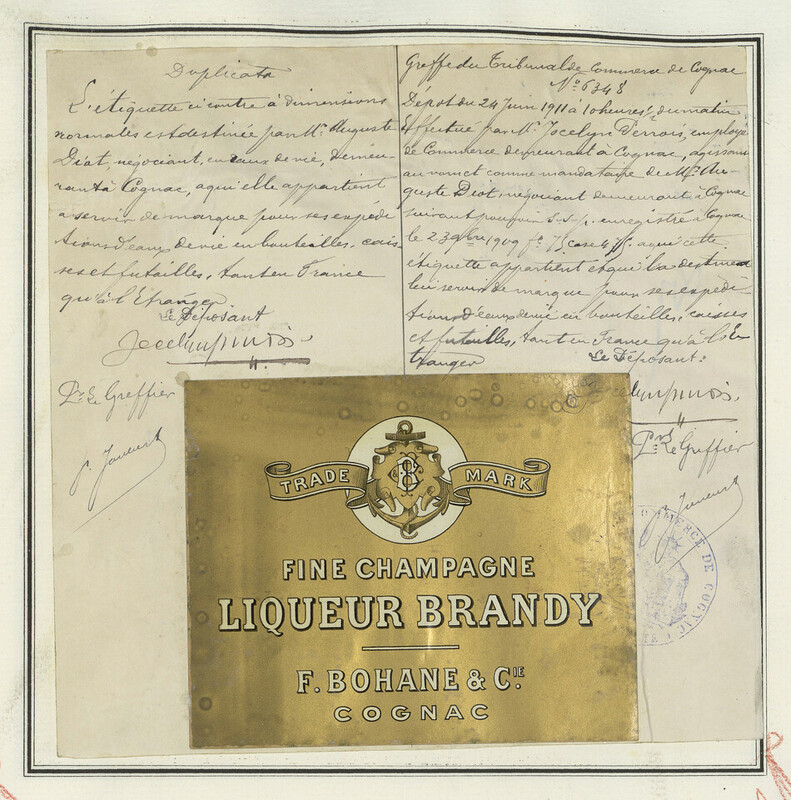 Duplicata
L'étiquette ci contre à dimensions
normales est destinée par Mr. Auguste
Diot, négociant en eaux de vie, demeu-
rant à Cognac, a qui elle appartient
a servir de marque pour ses expédi
tions d'eaux de vie en bouteilles, cais
ses et futailles, tant en France
qu'à l'Etranger
Le Déposant
Pr. Le Greffier
Greffe du Tribunal de Commerce de Cognac
No. 6348
Dépôt du 24 Juin 1911 à 10 heures du matin
Effectué par Mr. Jocelyn employé
de Commerce demeurant à Cognac, agissant
au nom et comme mandataire de Mr. Au-
guste Diot, négociant demeurant à Cognac
suivant pouvoir s.s.p. enregistré à Cognac
le 23 9bre 1909 fo. 75 case a qui cette
étiquette appartient et qui la destine à
lui servir de marque pour ses expédi
tions d'eaux de vie en bouteilles, caisses
et futailles, tant en France qu'à l'E
tranger
Le Déposant:
Pr. Le Greffier
TRADE MARK
FINE CHAMPAGNE
LIQUEUR BRANDY
F. BOHANE & CIE.
COGNAC
COMMERCE DE COGNAC